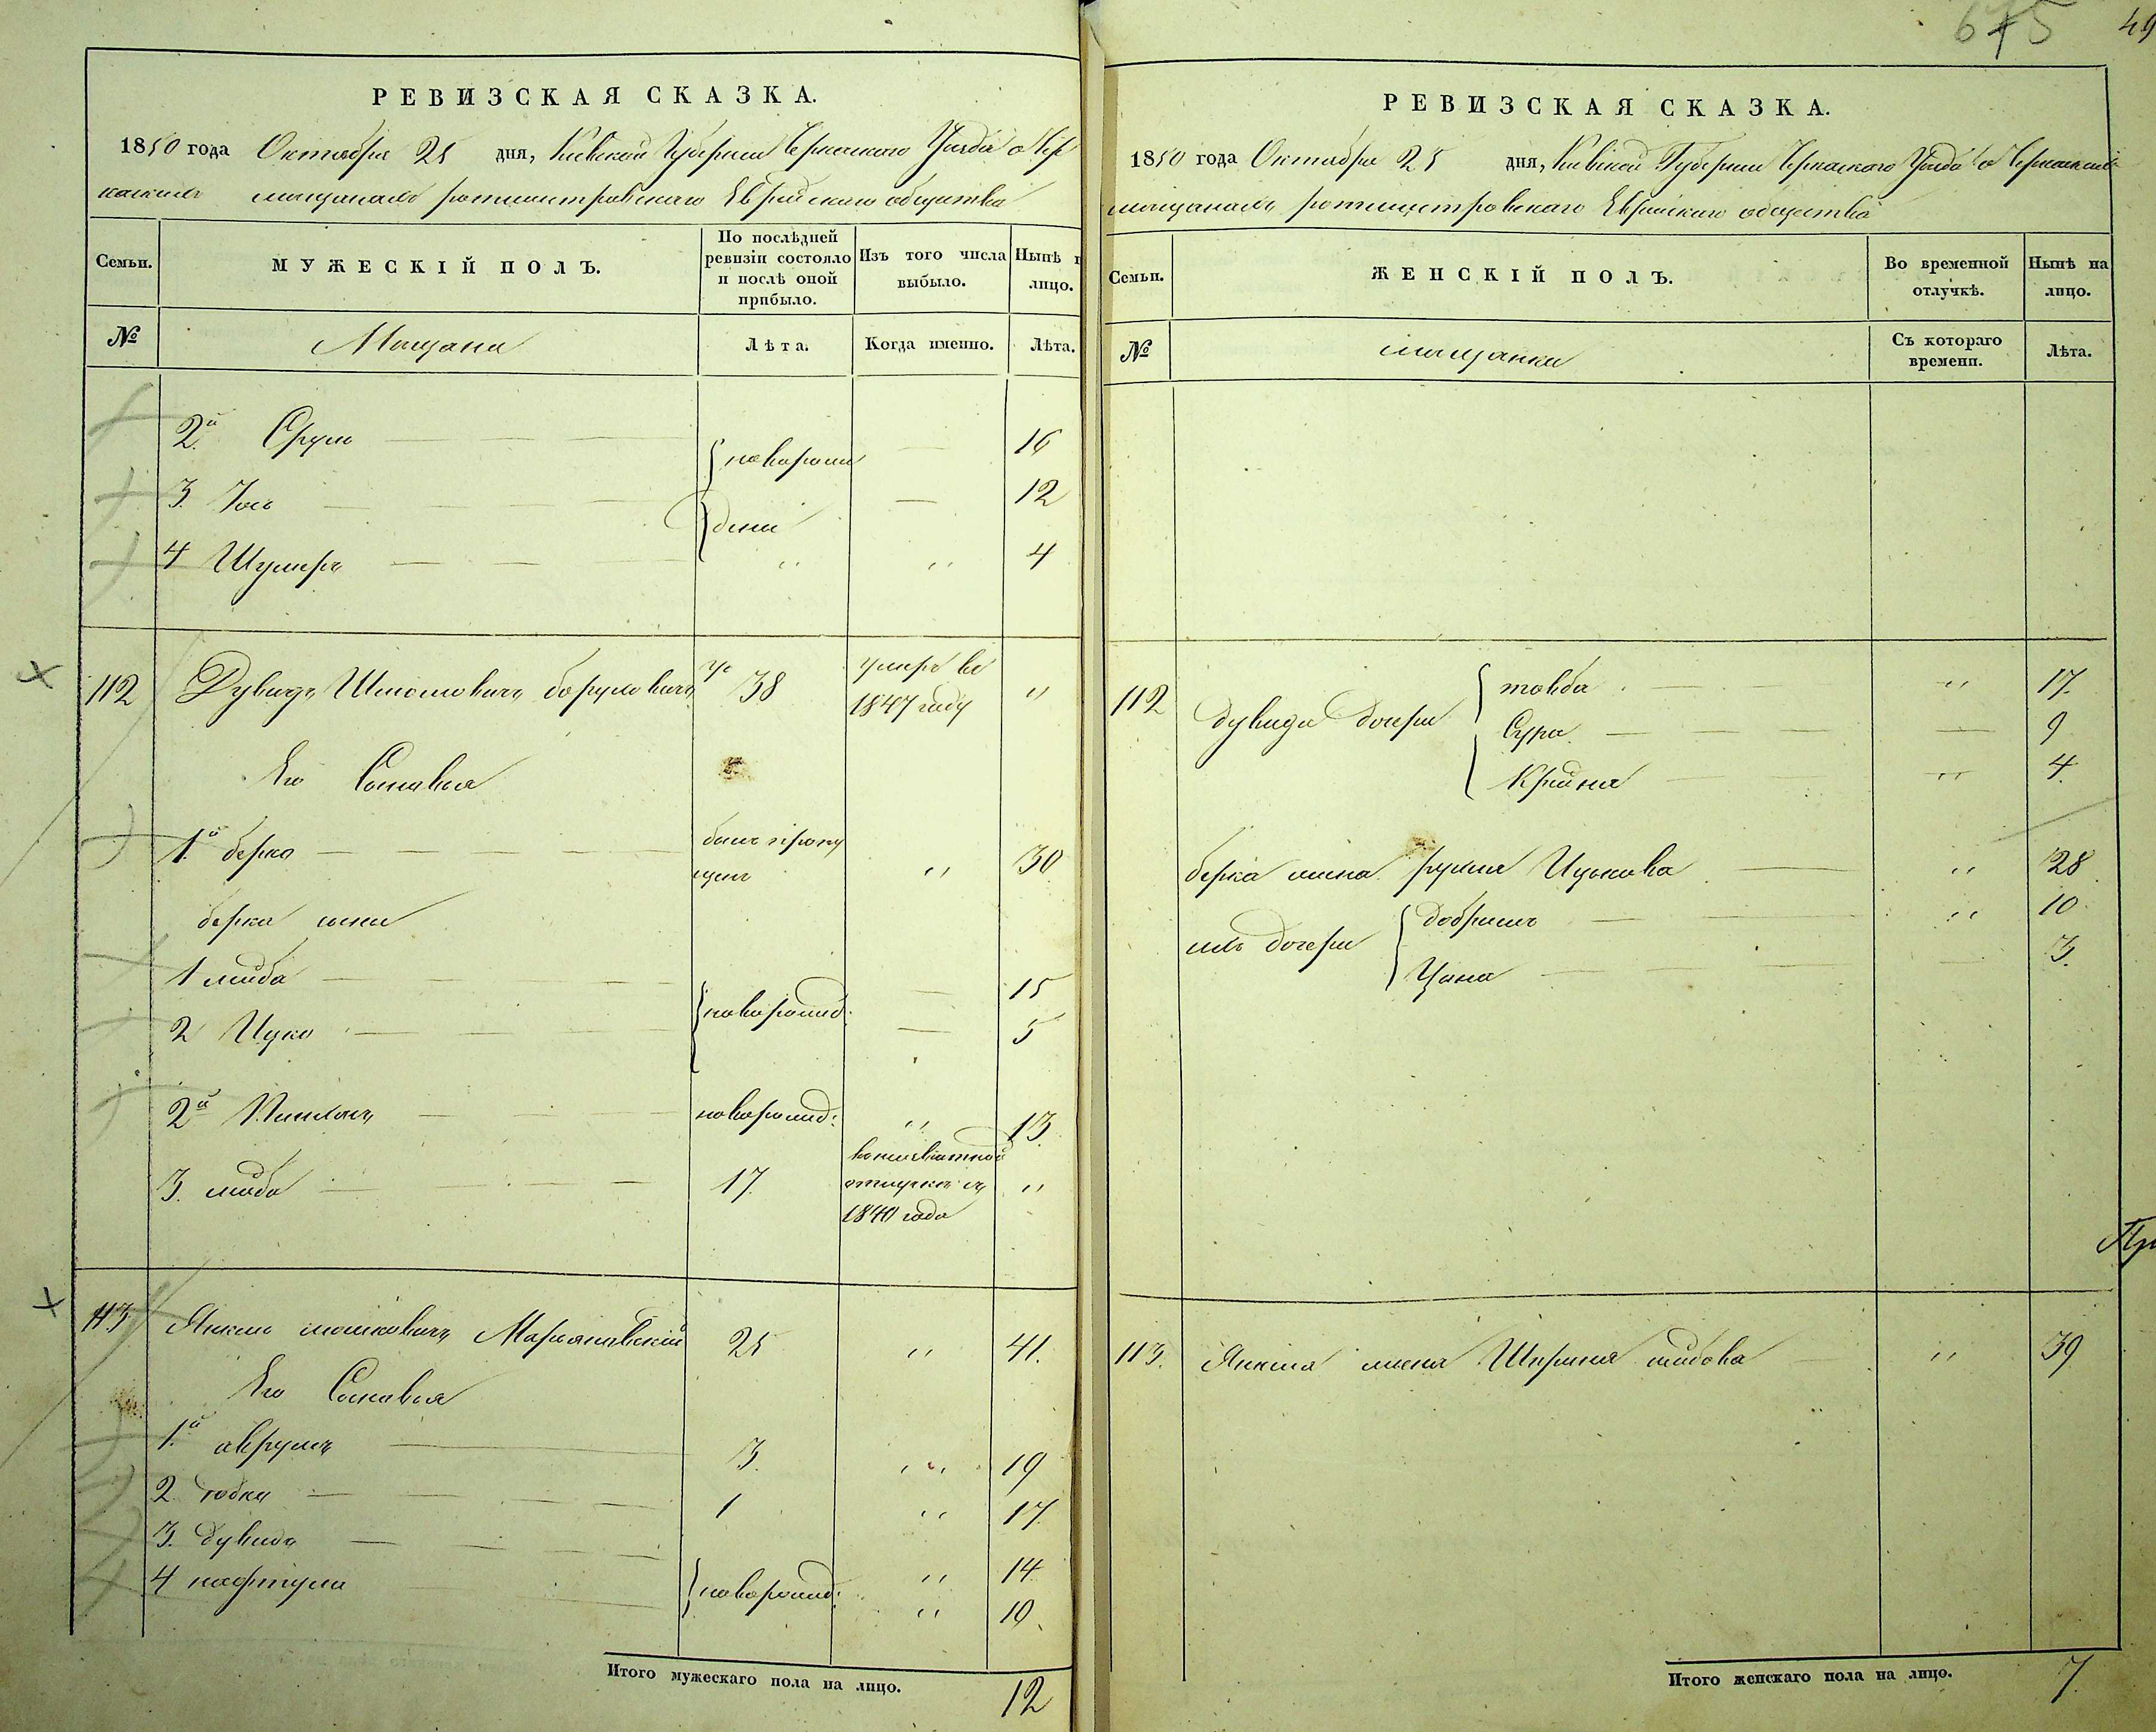 675 49
РЕВИЗСКАЯ СКАЗКА.
1850 года Октября 25 дня, Киевской Губернии Черкаского Уезда о Чер
каскихъ мещанахъ ротмистровскаго Еврейскаго общества
Семьи. МУЖЕСКІЙ ПОЛЪ. По послѣдней ревизіи состояло и послѣ оной прибыло. Изъ того числа выбыло. Нынѣ лицо.
№ Мещане Лѣта. Когда именно. Лѣта.
2й Сруль 16
новорож
3. Іось 12
дени
4 Шулимъ " " 4
112 Дувидъ Шмолевичъ борулевичъ 38 умеръ въ 1847 году "
Его Сыновья
1й берко былъ пропущенъ " 30
берка сыны
1 лейба 15
новорожд:
2 Ицко 5
2й новорожд: " 13
3. лейба 17. отлучке съ 1840 года "
113 Янкель мошковичъ Марьяновскій 25 " 41.
Его Сыновья
1й аврумъ 3. " 19
2. 1 " 17.
3. дувидъ " 14
новорожд:
4 нафтула " 10.
Итого мужескаго пола на лицо. 12
РЕВИЗСКАЯ СКАЗКА.
1850 года Октября 25 дня, Киевской Губернии Черкаского Уезда о Черкаскихъ
мещанахъ ротмистровскаго Еврейскаго общества
Семьи. ЖЕНСКІЙ ПОЛЪ. Во временной отлучкѣ. Нынѣ на лицо.
№ мещанки Съ котораго времени. Лѣта.
товба " 17.
112 дувида дочери Сура 9
Крейна " 4.
берка жена рухля Ицькова " 28
добришъ " 10
ихъ дочери
Цына 3.
113. Янкеля жена Шпринца лейбова " 39
Итого женскаго пола на лицо. 7